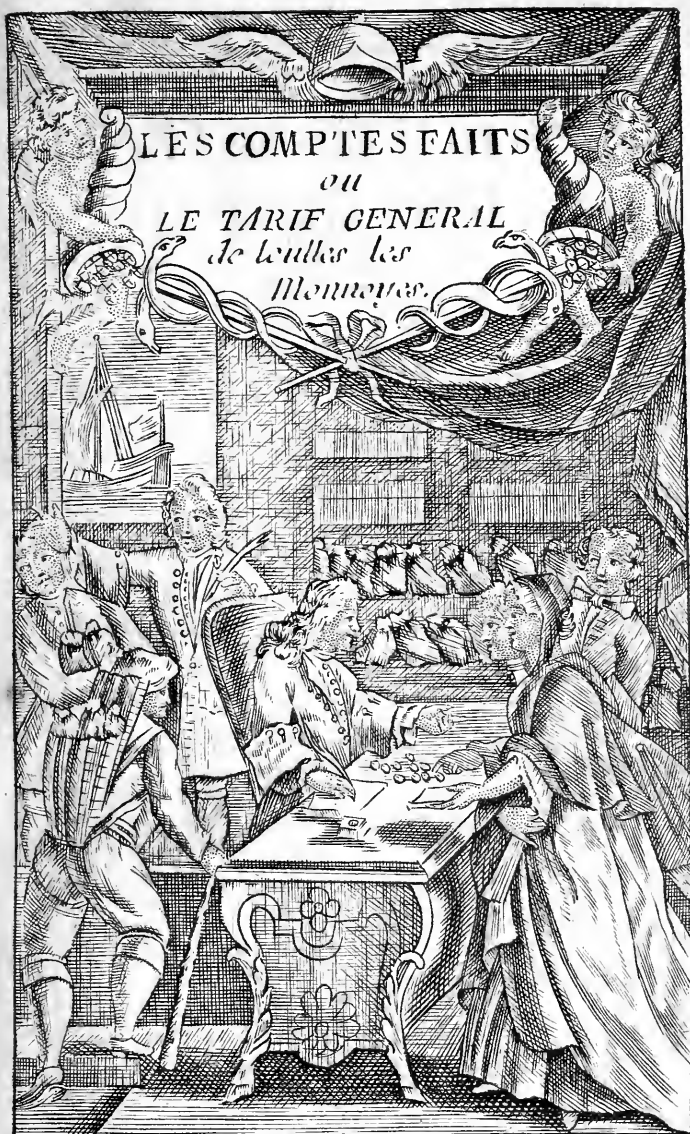 LES COMPTES FAITS
ou
LE TARIF GENERAL
de toutes les
Monnoyes.